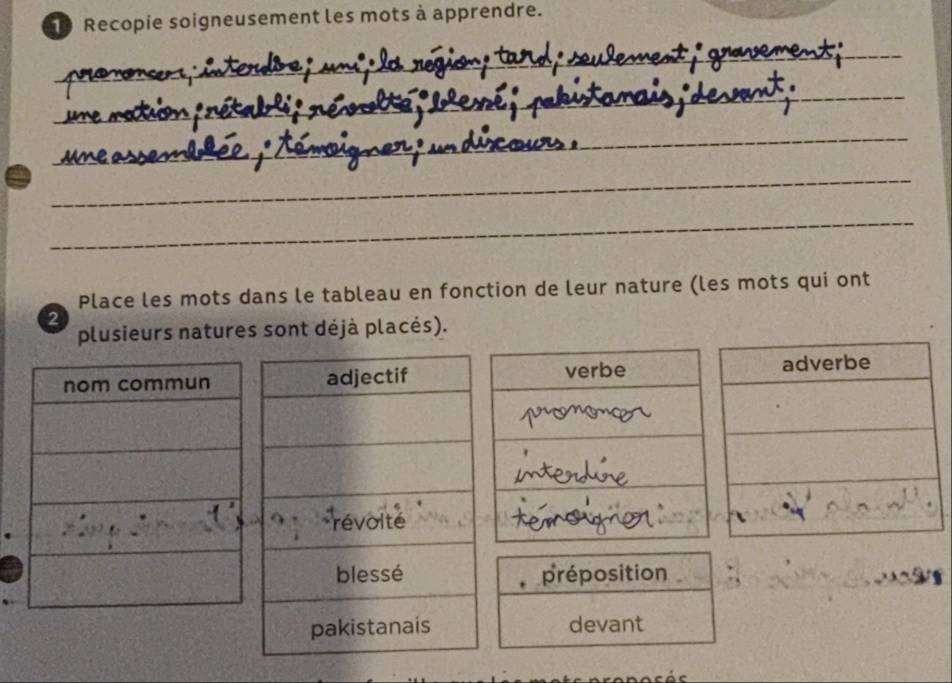 1 Recopie soigneusement les mots à apprendre.
prononcer; interdire; uni; la région; tard; seulement; gravement;
une nation; rétabli; révolté; blessé; pakistanais; devant;
une assemblée; témoigner; un discours.
2 Place les mots dans le tableau en fonction de leur nature (les mots qui ont
plusieurs natures sont déjà placés).
nom commun adjectif verbe adverbe
prononcer
interdire
révolté témoigner
blessé préposition
pakistanais devant